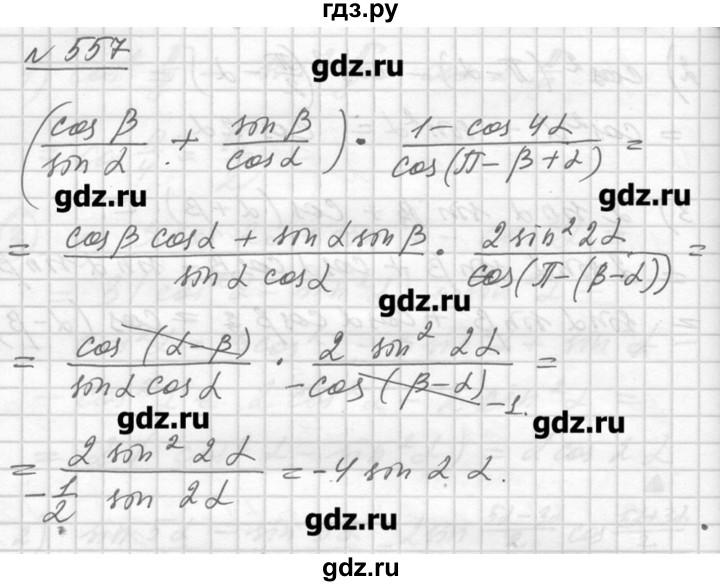 гдз.ру
N 557
gdz.ru
(cos β / sin α + sin β / cos α) · (1 - cos 4α) / cos(π - β + α) =
gdz.ru gdz.ru
= (cos β cos α + sin α sin β) / (sin α cos α) · 2 sin² 2α / cos(π - (β - α)) =
gdz.ru
= cos (α - β) / (sin α cos α) · 2 sin² 2α / -cos (β - α) -1. =
gdz.ru gdz.ru
= 2 sin² 2α / (-1/2 sin 2α) = -4 sin 2α.
gdz.ru
гдз.ру